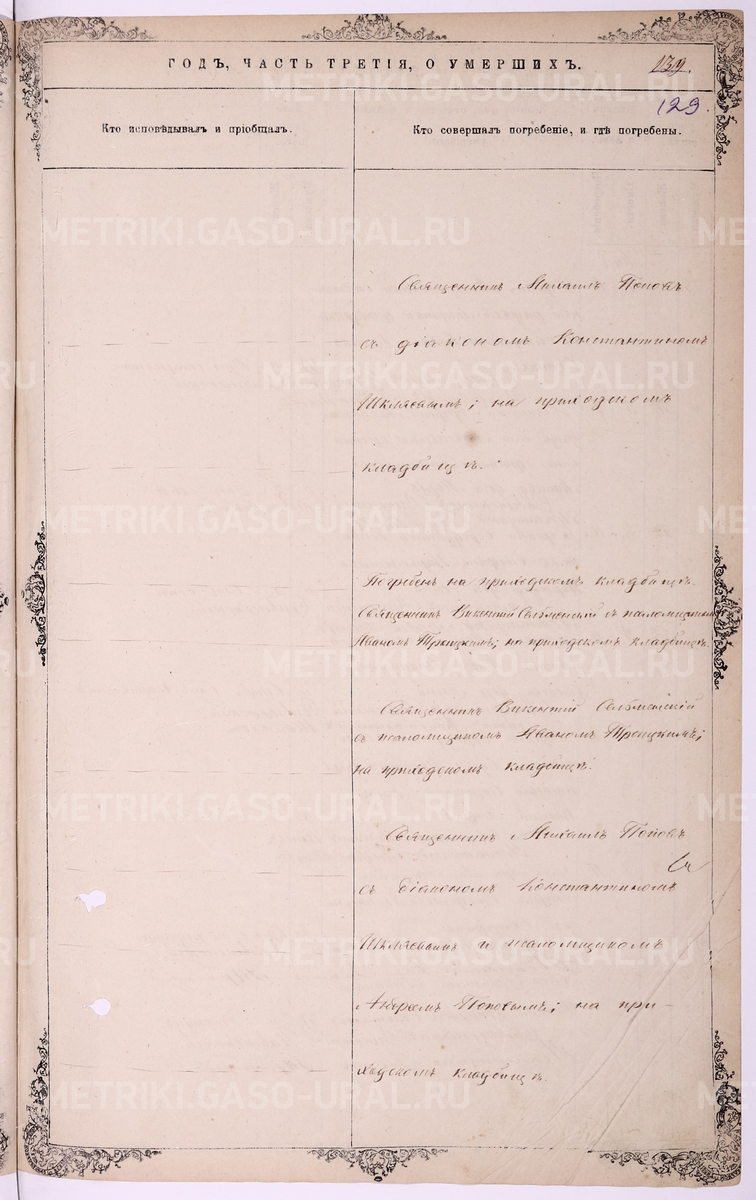 ГОДЪ, ЧАСТЬ ТРЕТІЯ, О УМЕРШИХЪ.
139.
129
Кто исповѣдывалъ и пріобщалъ.
Кто совершалъ погребеніе, и гдѣ погребены.
Священникъ Михаилъ Поповъ
съ діакономъ Константиномъ
Шкляевымъ; на приходскомъ
кладбищѣ.
Погребенъ на приходскомъ кладбищѣ.
Священникъ Викентій съ псаломщикомъ
Иваномъ Троицкимъ; на приходскомъ кладбищѣ.
Священникъ Викентій
съ псаломщикомъ Иваномъ Троицкимъ;
на приходскомъ кладбищѣ.
Священникъ Михаилъ Поповъ
съ діакономъ Константиномъ
Шкляевымъ и псаломщикомъ
Поповымъ; на при-
ходскомъ кладбищѣ.
METRIKI.GASO-URAL.RU